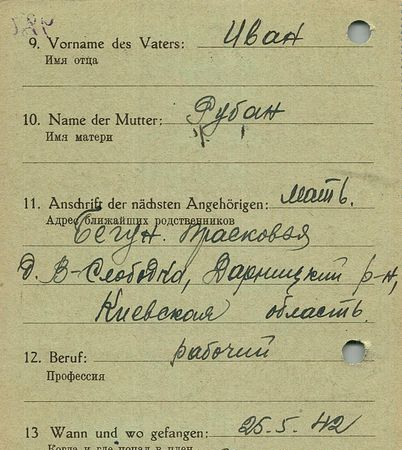 9. Vorname des Vaters: Иван
Имя отца
10. Name der Mutter: Рубан
Имя матери
11. Anschrift der nächsten Angehörigen: мать.
Адрес ближайших родственников
Бегун. Прасковая
Д. В-Слободка, Дарницкий р-н,
Киевская область.
12. Beruf: рабочий
Профессия
13 Wann und wo gefangen: 25.5.42
Когда и где попал в плен